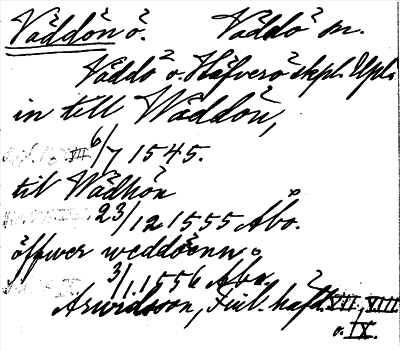 Väddön ö. Väddö sn.
Väddö o. Häfverö skpl. Upl.
in till Wäddön,
6/7 1545.
til Wädhön
23/12 1555 Åbo.
öffwer weddöenn
3/1 1556 Åbo.
Arwidsson, Finl. häfd. VII, VIII
o. IX.